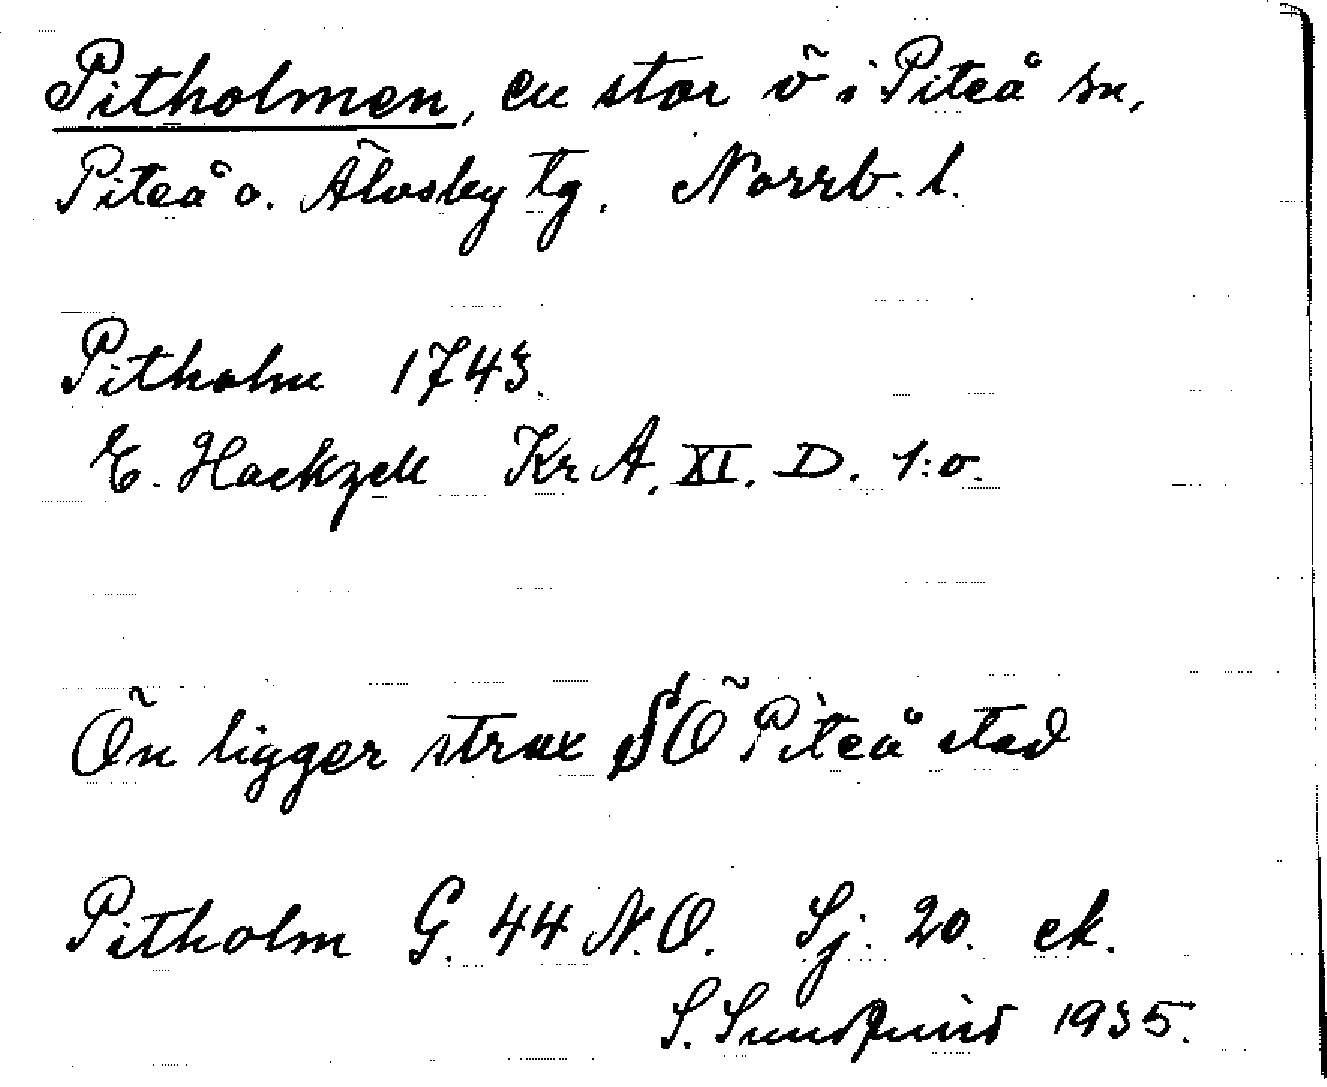 Pitholmen, en stor ö i Piteå sn,
Piteå o. Älvsby tg. Norrb. l.
Pitholm 1743.
E. Hackzell KrA. XI. D. 1:o.
Ön ligger strax SÖ Piteå stad
Pitholm G. 44 N.O. Sj. 20. ek.
S. Sundqvist 1935.